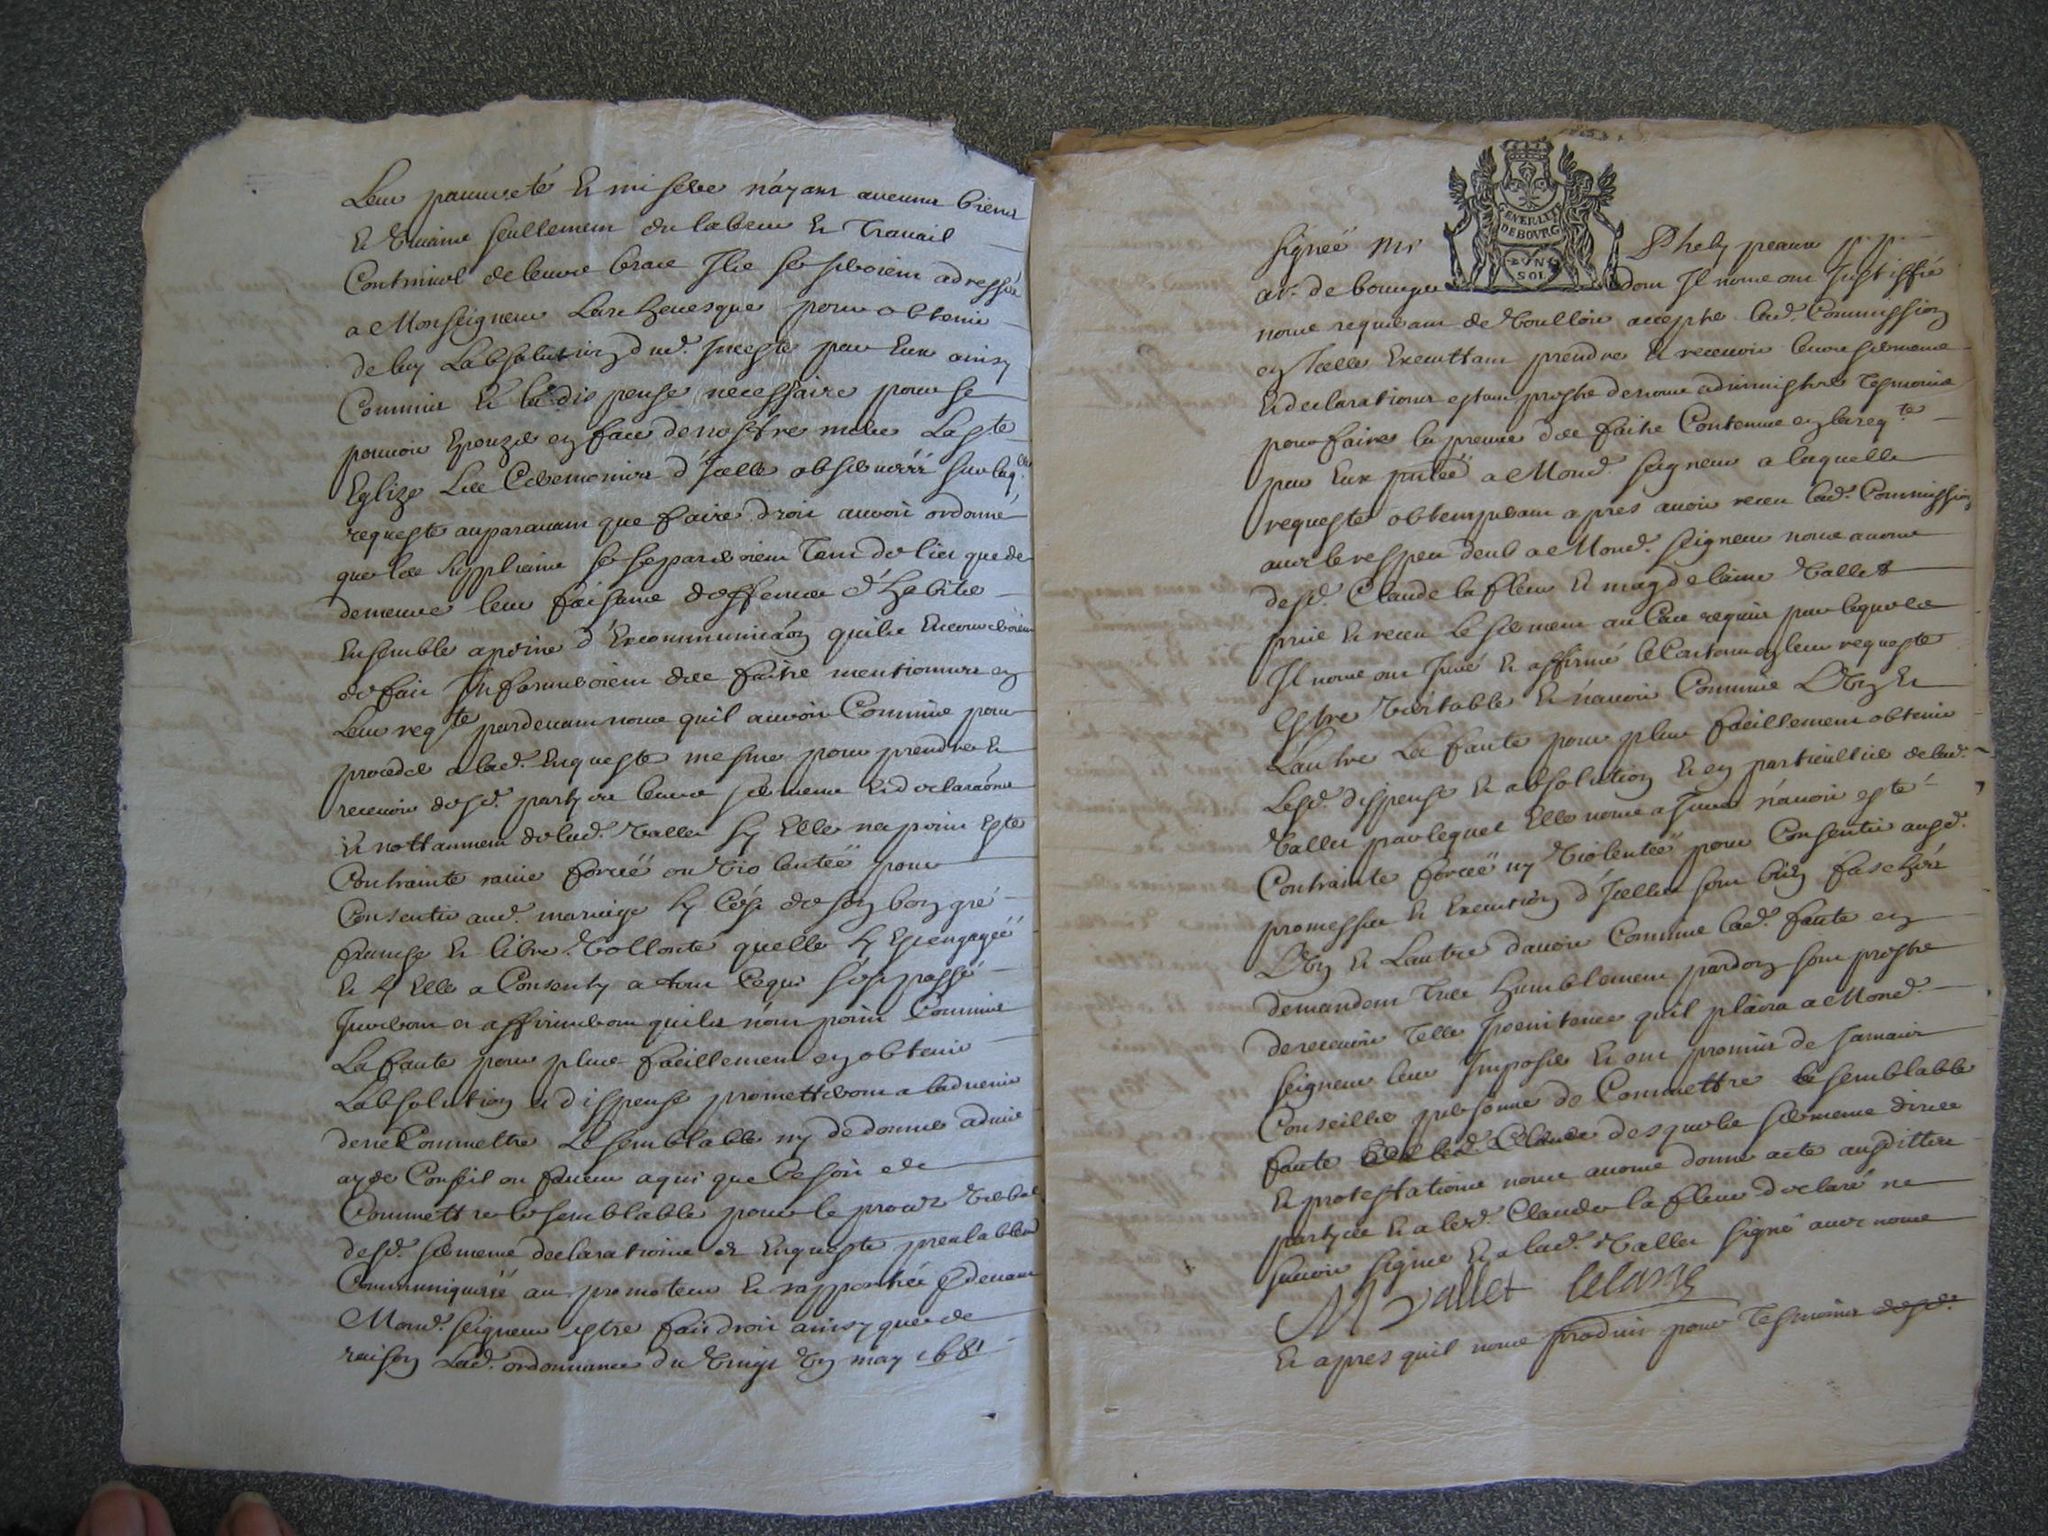 Leur pauvreté et misere n'ayans aucuns biens
et vivans seullement du labeur et travail
Continuel de leurs bras Ils se seroient adressés
a Monseigneur Larchevesque pour obtenir
de luy Labsolution dud. Inceste par Eux ainsy
Commis et la dispense necessaire pour se
pouvoir Epouzer en face de nostre mere La Ste
Eglize Les Ceremonies d'Icelle observéés sur laq.lle
requeste auparavant que faire droit auroit ordonné
que les suppliants se separeroient tant de lieu que de
demeure leur faisant deffences d'habiter
Ensemble a peine d'Excommunicaón quils Encourreroient
de fait Informeroient des faits mentionnes en
Leur reqte pardevant nous quil auroit Commis pour
proceder a lad. Enqueste mesme pour prendre et
recevoir desd. partyes leurs serments et declaraóns
et nottamment de lad. Vallet sy Elle na point esté
Contrainte ravie forcéé ou violentéé pour
Consentir aud. mariage sy Cést de son bon gré
franche et libre vollonté quelle sy est engagéé
et sy Elle a Consenty a tout Ce qui s'est passé
Jureront et affirmeront quils n'ont point Commis
La faute pour plus facillement en obtenir
Labsolution et dispense promettront a ladvenir
de ne Commettre Le semblable ny de donner advis
ayde Conseil ou faveur a qui que Ce soit de
Commettre le semblable pour le proces verbal
desd. serments declarations et Enqueste prealablemt
Communiquéé au promoteur et rapportéé pdevant
Mond. seigneur estre fait droit ainsy que de
raison Lad. ordonnance du vingt un may 1681
GENERALITE
DE BOURG
SOL
signéé Mr Phelypeaux p. p.
ar. de bourges dont Il nous ont Justiffié
nous requerant de voulloir accepter lad. Commission
en Icelle Executtant prendre et recevoir leurs serments
et declarations estant prests de nous administrer tesmoins
pour faire la preuve des faits Contenus en la reqte
par Eux pntéé a Mond. seigneur a laquelle
requeste obtemperant apres avoir receu lad. Commission
avec le respect deub a Mond. seigneur nous avons
desd. Claude la fleur et magdelaine Vallet
pris et receu le serment au Cas requis par lequel
Il nous ont Juré et affirmé le Contenu en leur requeste
Estre véritable et n'avoir Commis L'Un et
L'autre La faute pour plus facillement obtenir
Lesd. dispense et absolution et en particullier de lad.
Vallet par lequel Elle nous a Juré n'avoir esté
Contrainte forcéé ny violentéé pour Consentir ausd.
promesses et Execution d'Icelles sont bien faschéz
L'Un et Lautre d'avoir Commis lad. faute en
demandent tres humblement pardon sont prests
de recevoir telle penitence qu'il plaira a Mond.
seigneur leur Imposer et ont promis de Jamais
Conseiller personne de Commettre le semblable
faute desquels serments dires
et protestations nous avons donné acte ausdittes
partyes et a led. Claude la fleur declaré ne
scavoir signer et a lad. Vallet signé avec nous
M vallet
Et apres quil nous produit pour tesmoins desd.